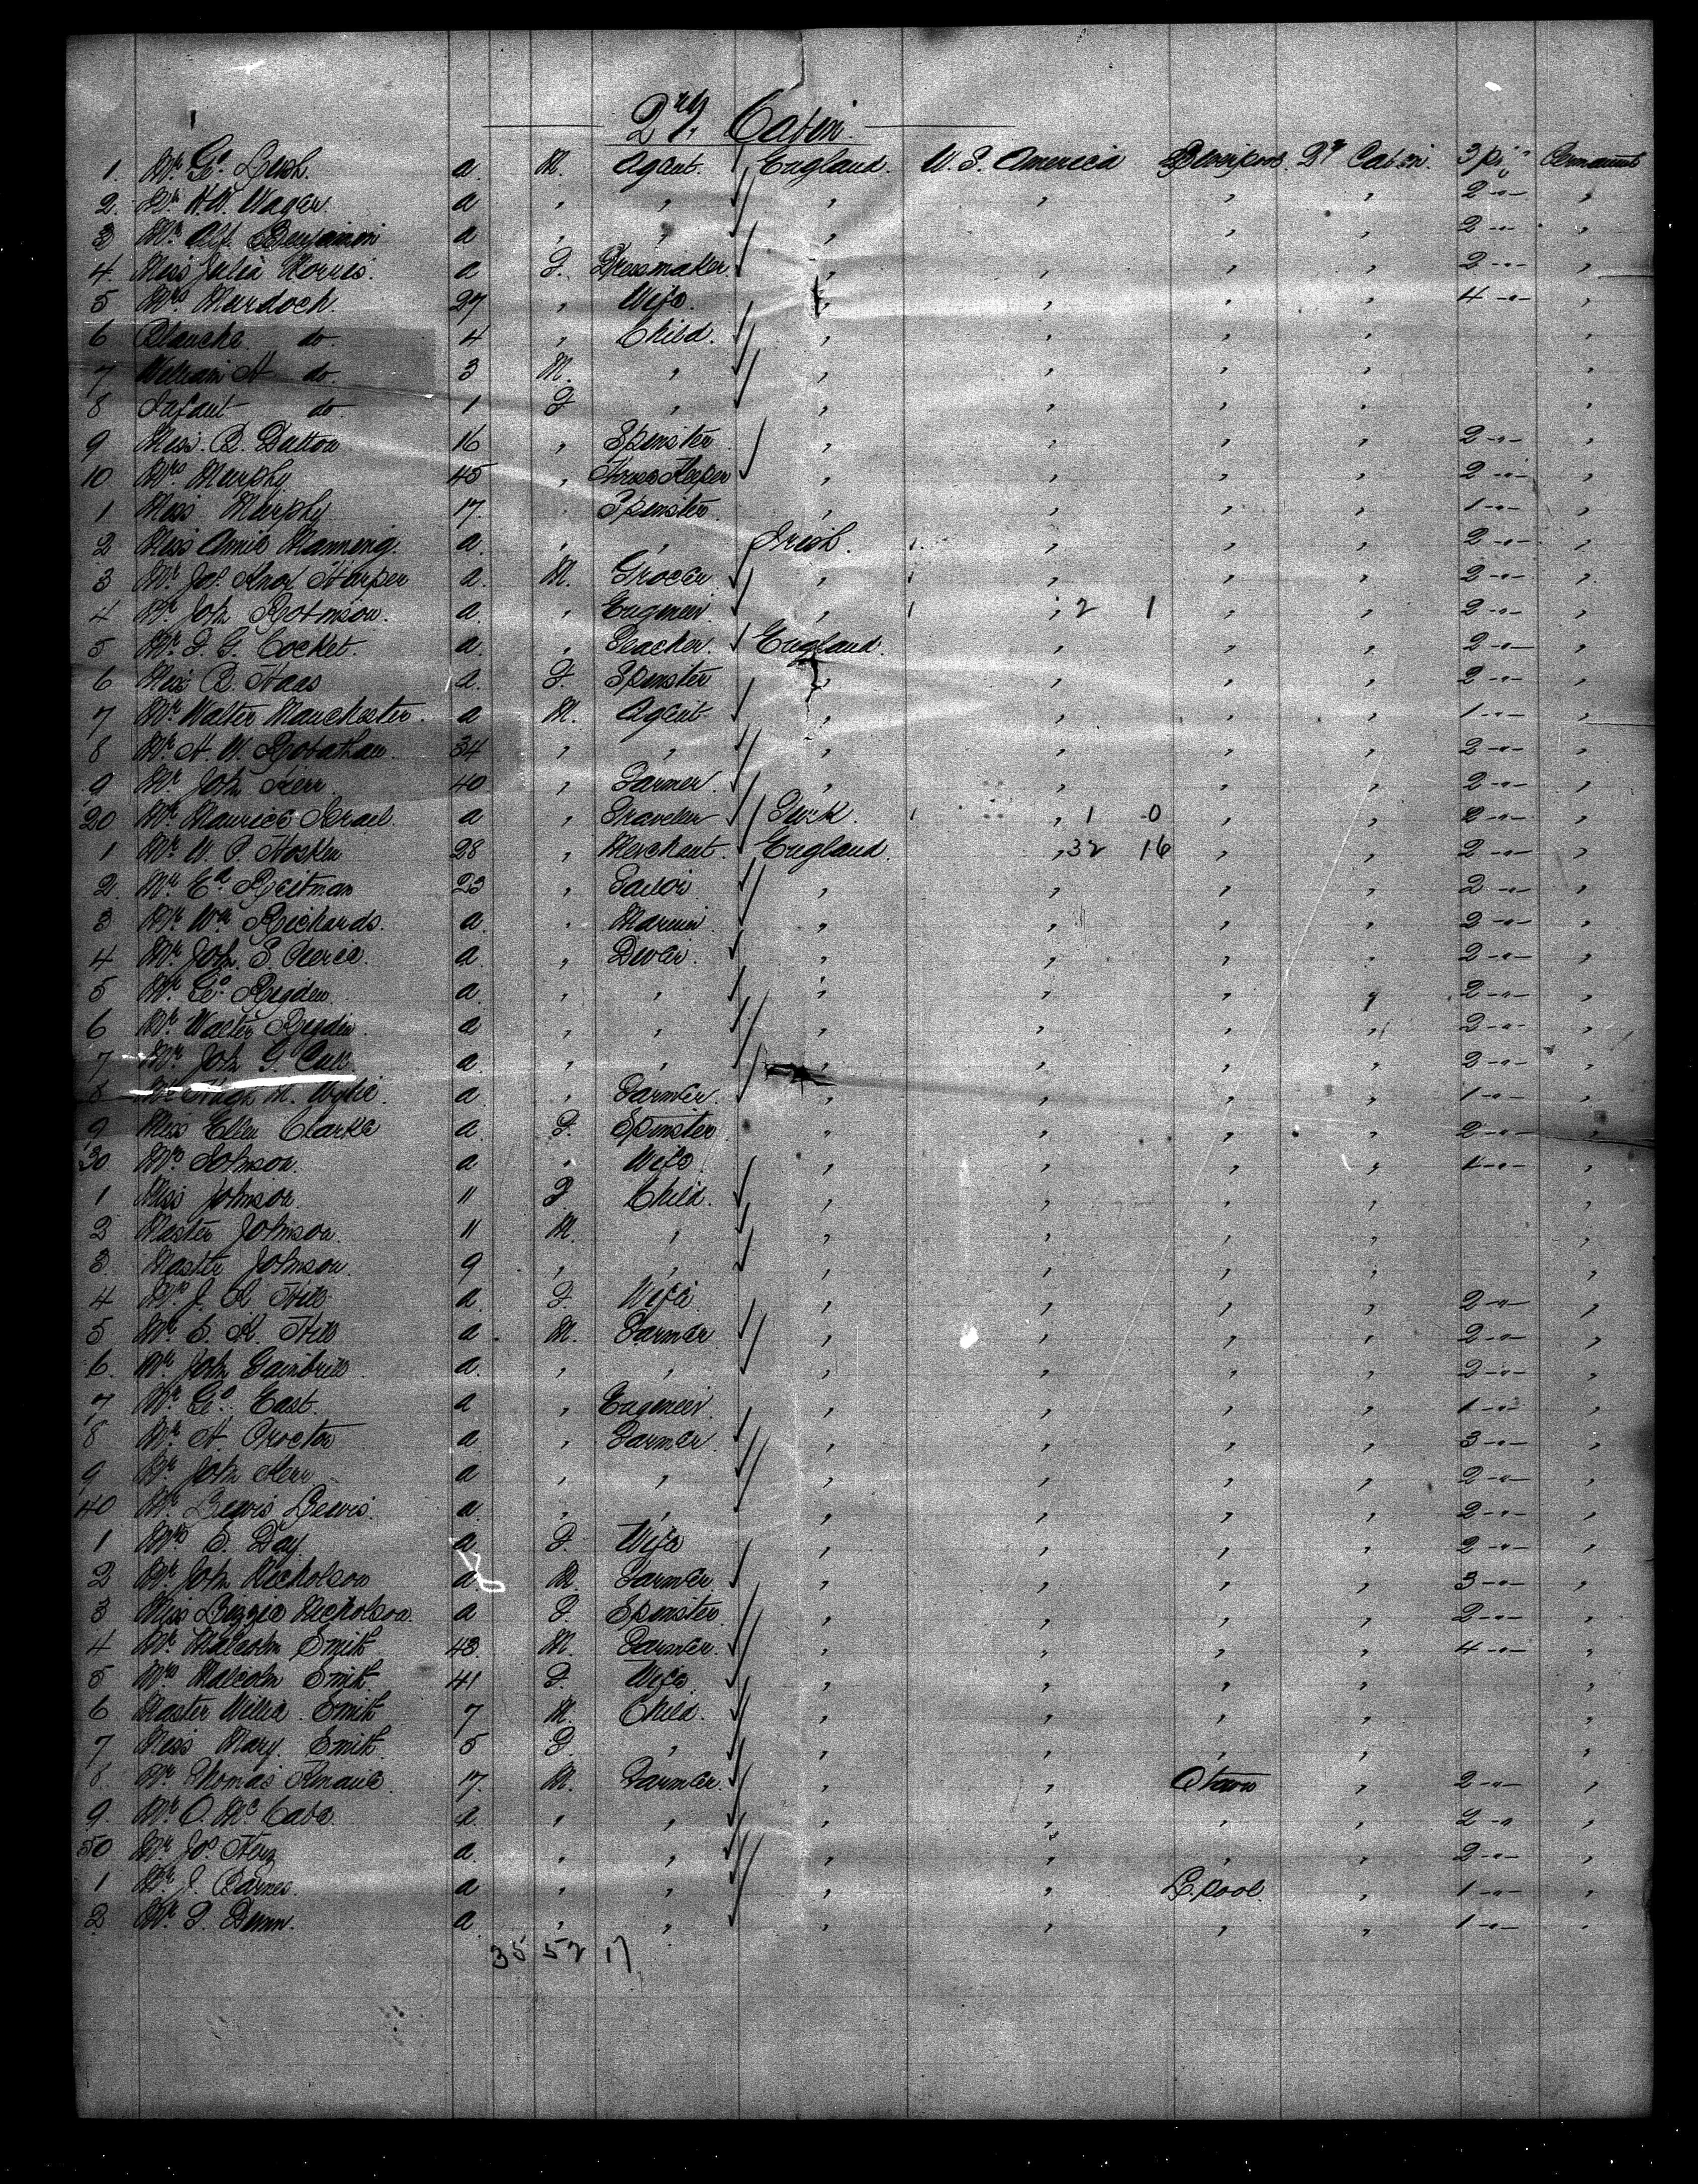 2nd Cabin
1. Mr Geo Lush. a. M. Agent. England. W. S. America Liverpool. 2nd Cabin. 3 ps Permanent
2. Mr H. W. Wager. a " " " " " " 2 -"- "
3 Mr Alf. Benjamin a " " " " " " 2 -"- "
4. Miss Julia Norris. a F. Dressmaker. " " " " 2 -"- "
5 Mrs Murdoch. 27 " Wife. " " " " 4 -"- "
6 Blanche do. 4 " Child. " " " " "
7 William H do. 3 M. " " " " " "
8 Infant do. 1 F " " " " " "
9 Miss. B. Dutton 16 " Spinster " " " " 2 -"- "
10 Mrs Murphy 45 " House Keeper " " " " 2 -"- "
1 Miss Murphy 17. " Spinster. " " " " 1 -"- "
2 Miss Annie Manning. a. " " Irish. 1. " " " 2 -"- "
3 Mr Jas. Knox Harper a. M. Grocer " 1 " " " 2 -"- "
4 Mr John Robinson. a. " Engineer " 1 " 2 1 " " 2 -"- "
5 Mr F. G. Cocket. a. " Teacher. England. " " " 2 -"- "
6 Miss B. Haas a. F. Spinster " " " " 2 -"- "
7 Mr Walter Manchester. a M. Agent " " " " 1 -"- "
8 Mr H. W. Robathan. 34 " " " " " " 2 -"- "
9 Mr John Kerr. 40 " Farmer. " " " " 2 -"- "
20 Mr Maurice Israel. a " Traveller Turk. 1 " 1 0 " " 2 -"- "
1 Mr W. P. 28 " Merchant. England. " 32 16 " " 2 -"- "
2. Mr Ed. Reitman 23 " Tailor " " " " 2 -"- "
3 Mr Wm Richards. a. " Mariner " " " " 2 -"- "
4 Mr John S. Peirce. a. " Diver. " " " " 2 -"- "
5 Mr Geo Rigden. a. " " " " " " 2 -"- "
6 Mr Walter Rigden. a " " " " " " 2 -"- "
7 Mr John G. a. " " " " " " 2 -"- "
8 Mr Hugh M. Wylie. a. " Farmer. " " " " 1 -"- "
9 Miss Ellen Clarke a. F. Spinster " " " " 2 -"- "
30 Mrs Johnson. a " Wife. " " " " 1 -"- "
1 Miss Johnson. 11 F Child. " " " "
2 Master Johnson. 11 M. " " " " " "
3. Master Johnson. 9 " " " " " " "
4 Mrs J. R. Hill a. F. Wife. " " " " 2 -"- "
5 Mr S. R. Hill a. M. Farmer " " " " 2 -"- "
6. Mr John Gambrill. a. " " " " " " 2 -"- "
7 Mr Geo. East. a " Engineer " " " " 1 -"- "
8 Mr H. Proctor a. " Farmer " " " " 3 -"- "
9 Mr John Kerr a " " " " " " 2 -"- "
40 Mr Lewis Lewis. a. " " " " " " 2 -"- "
1 Mrs S. Day. a F. Wife " " " " 2 -"- "
2 Mr John Nicholson a. M. Farmer. " " " " 3 -"- "
3 Miss Lizzie Nicholson. a F. Spinster " " " " 2 -"- "
4 Mr Malcolm Smith 43. M. Farmer. " " " " 4 -"- "
5 Mrs Malcolm Smith. 41 F. Wife " " " "
6 Master Willie. Smith 7 M. Child. " " " " "
7 Miss Mary. Smith. 5 F. " " " " " "
8 Mr Thomas 17. M. Farmer. " " Qtown " 2 -"- "
9. Mr O. McCabe. a. " " " " " " 2 -" "
50 Mr Jos a. " " " " " " 2 -"- "
1 Mr J. Barnes. a " " " " L.pool. " 1 -"- "
2 Mr T. Dunn. a " " " " " " 1 -"- "
35 52 17